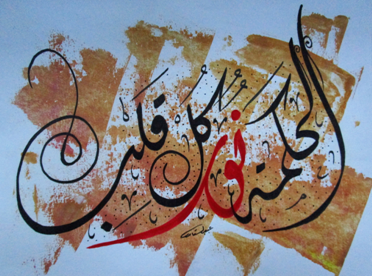 الحكمة نور كل قلب